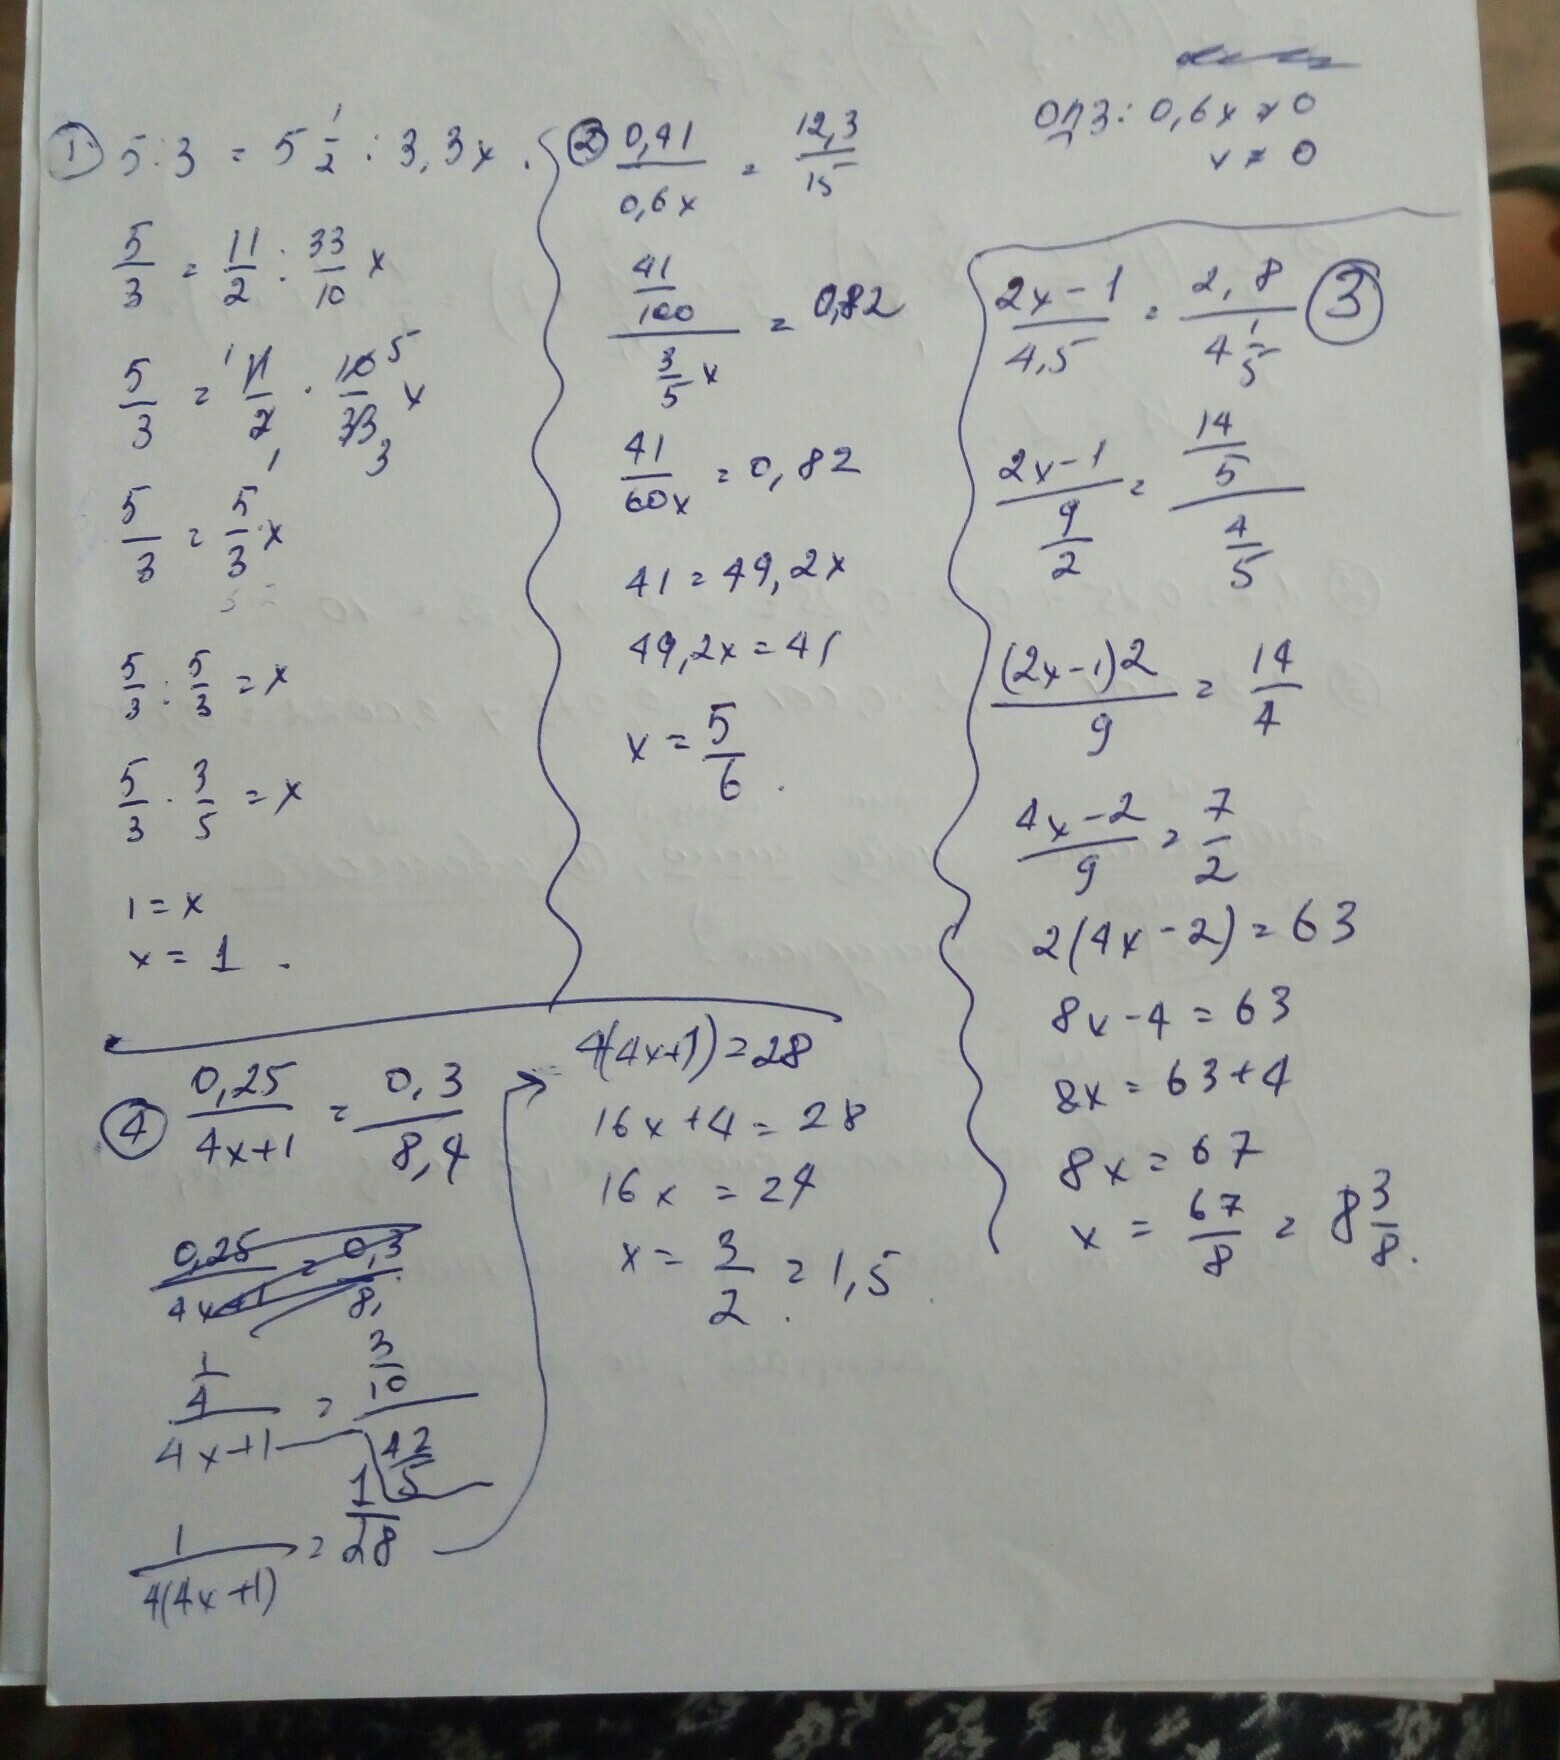 ① 5 : 3 = 5 1/2 : 3,3x.
5/3 = 11/2 : 33/10 x
5/3 = 11/2 · 10/33 x
1 1 5 3
5/3 = 5/3 · x
5/3 : 5/3 = x
5/3 · 3/5 = x
1 = x
x = 1.
② 0,41/0,6x = 12,3/15
ОДЗ: 0,6x ≠ 0
x ≠ 0
(41/100)/(3/5 x) = 0,82
41/60x = 0,82
41 = 49,2x
49,2x = 41
x = 5/6.
③ (2x-1)/4,5 = 2,8/(4 1/5)
(2x-1)/(9/2) = (14/5)/(4/5)
(2x-1)2/9 = 14/4
(4x-2)/9 = 7/2
2(4x-2) = 63
8x-4 = 63
8x = 63+4
8x = 67
x = 67/8 = 8 3/8.
④ 0,25/(4x+1) = 0,3/8,4
0,25/(4x+1) = 0,3/8,
(1/4)/(4x+1) = (3/10)/(42/5)
1/(4(4x+1)) = 1/28
4(4x+1) = 28
16x+4 = 28
16x = 24
x = 3/2 = 1,5.